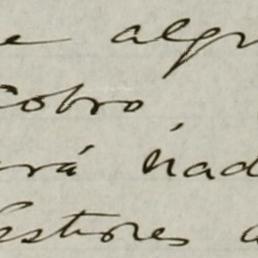 e algu
cobro,
ará nad
estiones a